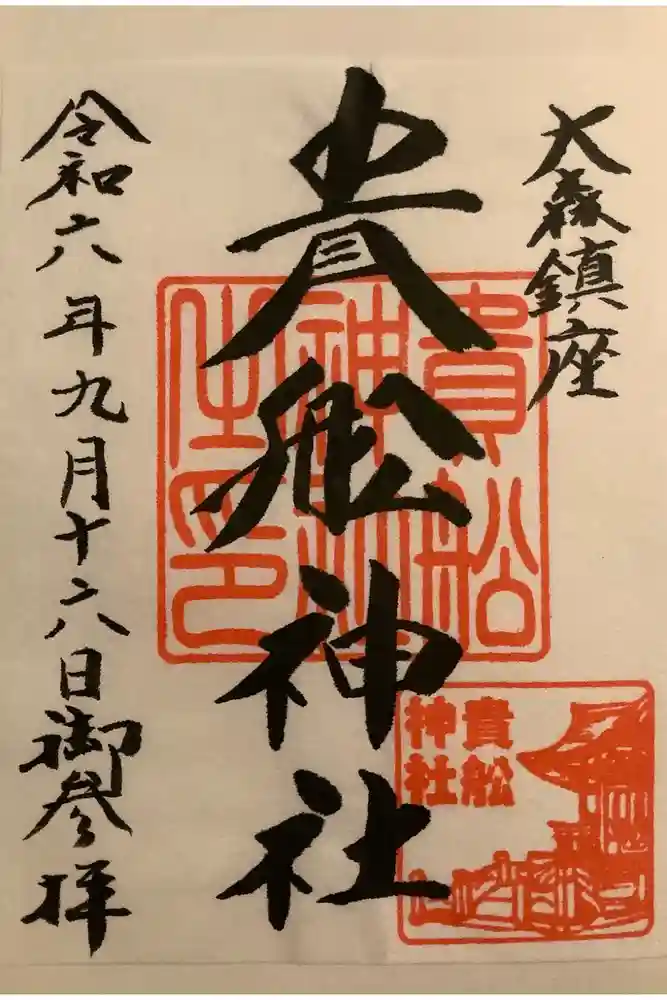 大森鎮座
貴舩神社
令和六年九月十六日御参拝
貴船
神社
之印
貴舩
神社